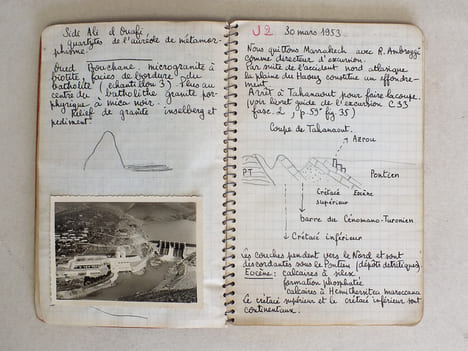 Sidi Ali el Ouafi
quartzites de l'auréole de métamor-
phisme.
Oued Bouchane, microgranite à
biotite, faciès de bordure du
batholite (échantillon 3) Plus au
centre du batholithe granite por-
phyrique à mica noir.
Relief de granite inselberg et
pediment.
J2 30 mars 1953
Nous quittons Marrakech avec R. Ambroggi
comme directeur d'excursion.
Par suite de l'accident nord atlasique
la plaine du Haouz constitue un effondre-
ment.
Arrêt à Tahanaout pour faire la coupe.
(voir livret guide de l'excursion C 33
fasc. 2, p 59 fig 35)
Coupe de Tahanaout.
Azrou
PT
Pontien
Crétacé
supérieur
Eocène
barre du Cénomano-Turonien
Crétacé inférieur
Les couches pendent vers le Nord et sont
discordantes sous le Pontien (dépôts detritiques).
Eocène: calcaires à silex
formation phosphatée
calcaires à Hemithersitea maroccana
Le crétacé supérieur et le crétacé inférieur sont
continentaux.